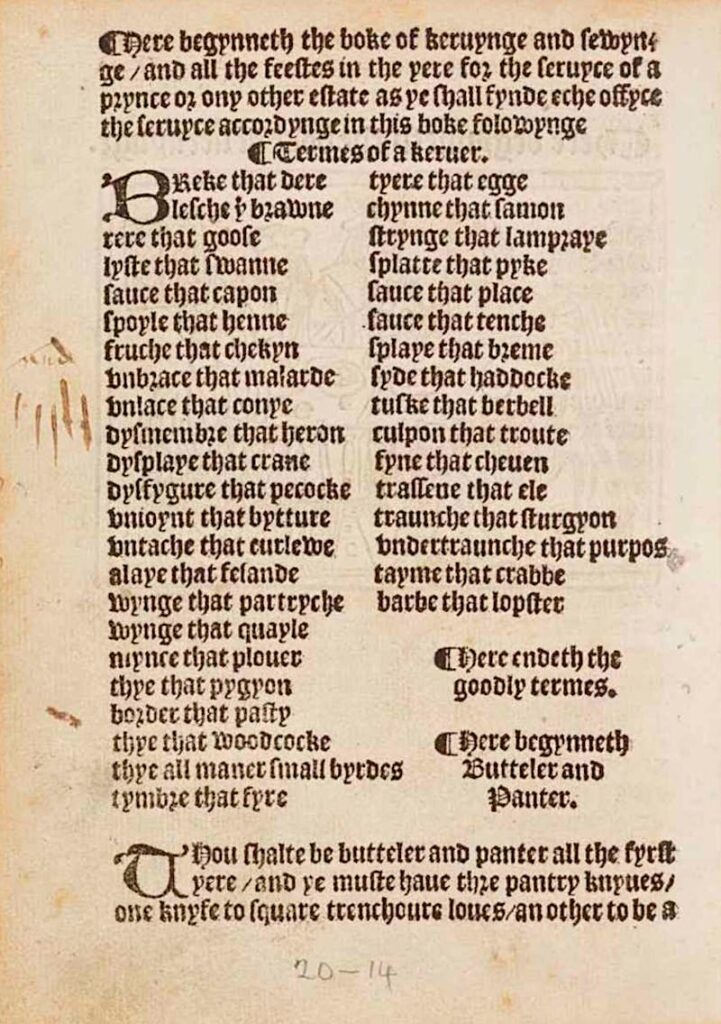 ¶Here begynneth the boke of keruynge and sewyn-
ge / and all the feestes in the yere for the seruyce of a
prynce or ony other estate as ye shall fynde eche offyce
the seruyce accordynge in this boke folowynge
¶Termes of a keruer.
BReke that dere
lesche ẏ brawne
rere that goose
lyfte that swanne
sauce that capon
spoyle that henne
fruche that chekyn
vnbrace that malarde
vnlace that conye
dysmembre that heron
dysplaye that crane
dysfygure that pecocke
vnioynt that bytture
vntache that curlewe
alaye that fesande
wynge that partryche
wynge that quayle
mynce that plouer
thye that pygyon
border that pasty
thye that woodcocke
thye all maner small byrdes
tymbre that fyre
tyere that egge
chynne that samon
strynge that lampraye
splatte that pyke
sauce that place
sauce that tenche
splaye that breme
syde that haddocke
tuske that berbell
culpon that troute
fyne that cheuen
trassene that ele
traunche that sturgyon
vndertraunche that purpos
tayme that crabbe
barbe that lopster
¶Here endeth the
goodly termes.
¶Here begynneth
Butteler and
Panter.
THou shalte be butteler and panter all the fyrst
yere / and ye muste haue thre pantry knyues /
one knyfe to square trenchoure loues / an other to be a
20-14